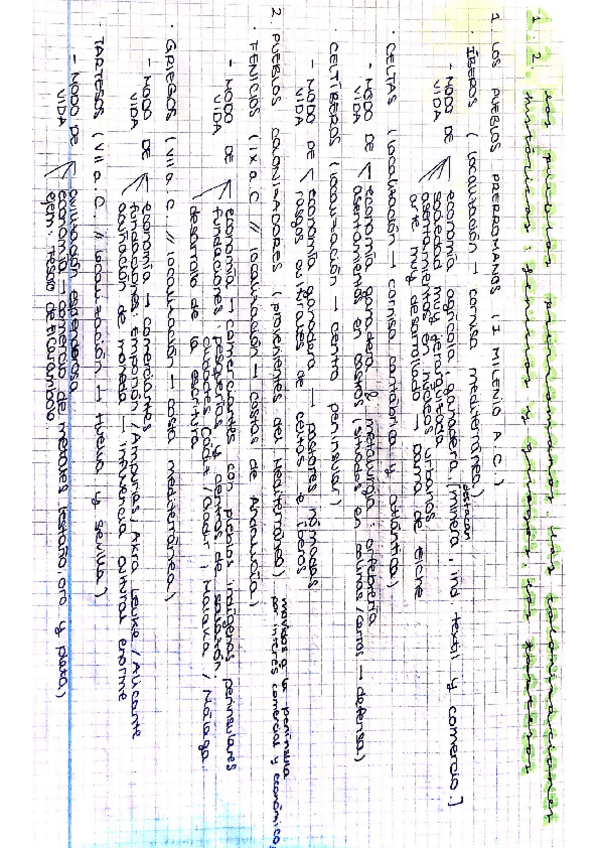 1.2. Los pueblos prerromanos. Las colonizaciones
históricas: fenicios y griegos. Los tartesos
1. LOS PUEBLOS PRERROMANOS (I MILENIO A.C.)
· ÍBEROS (localización → cornisa mediterránea)
- MODO DE VIDA
economía agrícola, ganadera, [minera, ind. textil y comercio.]
destacan
sociedad muy jerarquizada
asentamientos en núcleos urbanos
arte muy desarrollado → Dama de Elche
· CELTAS (localización → cornisa cantábrica y atlántica)
- MODO DE VIDA
economía ganadera & metalurgia: orfebrería
asentamientos en castros (situados en colinas/cerros → defensa)
· CELTÍBEROS (localización → centro peninsular)
- MODO DE VIDA
economía ganadera → pastores nómadas
rasgos culturales de celtas e íberos
2. PUEBLOS COLONIZADORES (provenientes del Mediterráneo)
movidos a la península
por interés comercial y económico.
· FENICIOS (IX a.C // localización → costas de Andalucía)
- MODO DE VIDA
economía → comerciantes con pueblos indígenas peninsulares
fundaciones: pesquerías y centros de salazón.
ciudades: Cádiz/Gadir, Malaka/Málaga
desarrollo de la escritura
· GRIEGOS (VII a.C. // localización → costa mediterránea)
- MODO DE VIDA
economía → comerciantes
fundaciones: Emporion/Ampurias, Akra Leuke/Alicante
acuñación de moneda → influencia cultural enorme
· TARTESOS (VII a.C. // localización → Huelva y Sevilla)
- MODO DE VIDA
civilización esplendorosa
economía → comercio de metales (estaño, oro y plata)
ejem: Tesoro de El Carambolo